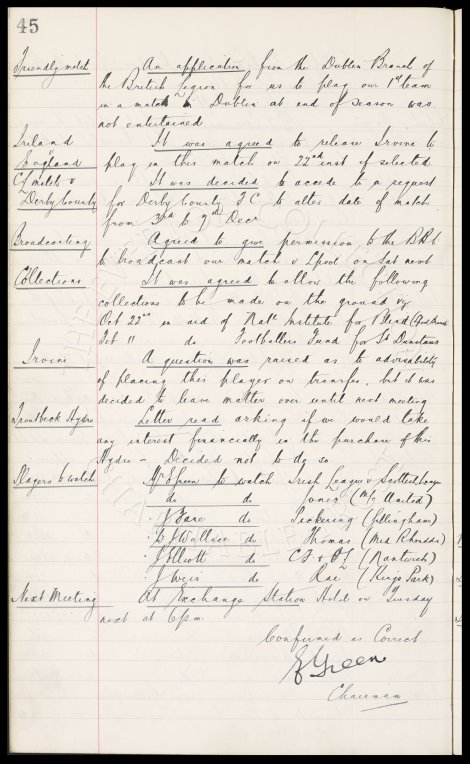 45
Friendly match An application from the Dublin Branch of
the British Legion for us to play our 1st team
in a match in Dublin at end of season was
not entertained
Ireland It was agreed to release Irvine to
England play in this match on 22nd inst if selected
C/ match v It was decided to accede to a request
Derby County for Derby County F C to alter date of match
from 3rd to 7th Decr
Broadcasting Agreed to give permission to the BBC
to broadcast our match v L'pool on Sat next
Collections It was agreed to allow the following
collections to be made on the ground viz
Oct 22nd in aid of Natl Institute for Blind
Feb 11 do Footballers Fund for St Dunstans
Irvine A question was raised as to advisability
of placing this player on transfer, but it was
decided to leave matter over until next meeting
Troutbeck Hydro Letter read asking if we would take
any interest financially in the purchase of this
Hydro - Decided not to do so.
Players to watch Mr Green to watch Irish League v Scottish League
do do Jones (M/c United)
" Gore do Pickering (Gillingham)
" Wallace do Thomas (Mid Rhondda)
" Elliott do CF & OL (Nantwich)
" Weir do Rae (Kings Park)
Next Meeting At Exchange Station Hotel on Tuesday
next at 6 pm
Confirmed as Correct
E Green
Chairman